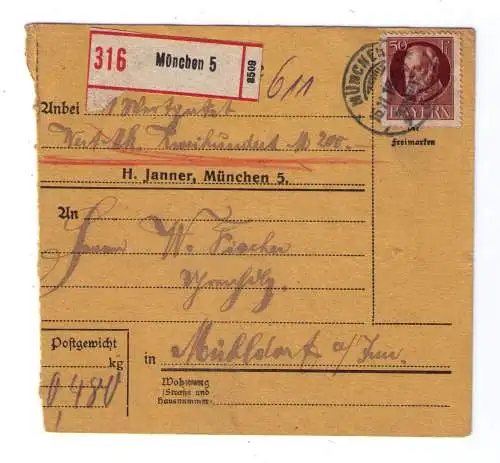 316 München 5 8509
611
50 Pf
BAYERN
MÜNCHEN
Anbei 1 Wertpaket
Wert Mk. Zweihundert M 200.-
Freimarken
H. Janner, München 5.
An
Herrn W. Fischer
Postgewicht
kg
0 480
in Mühldorf a/Inn.
Wohnung
(Straße und
Hausnummer)